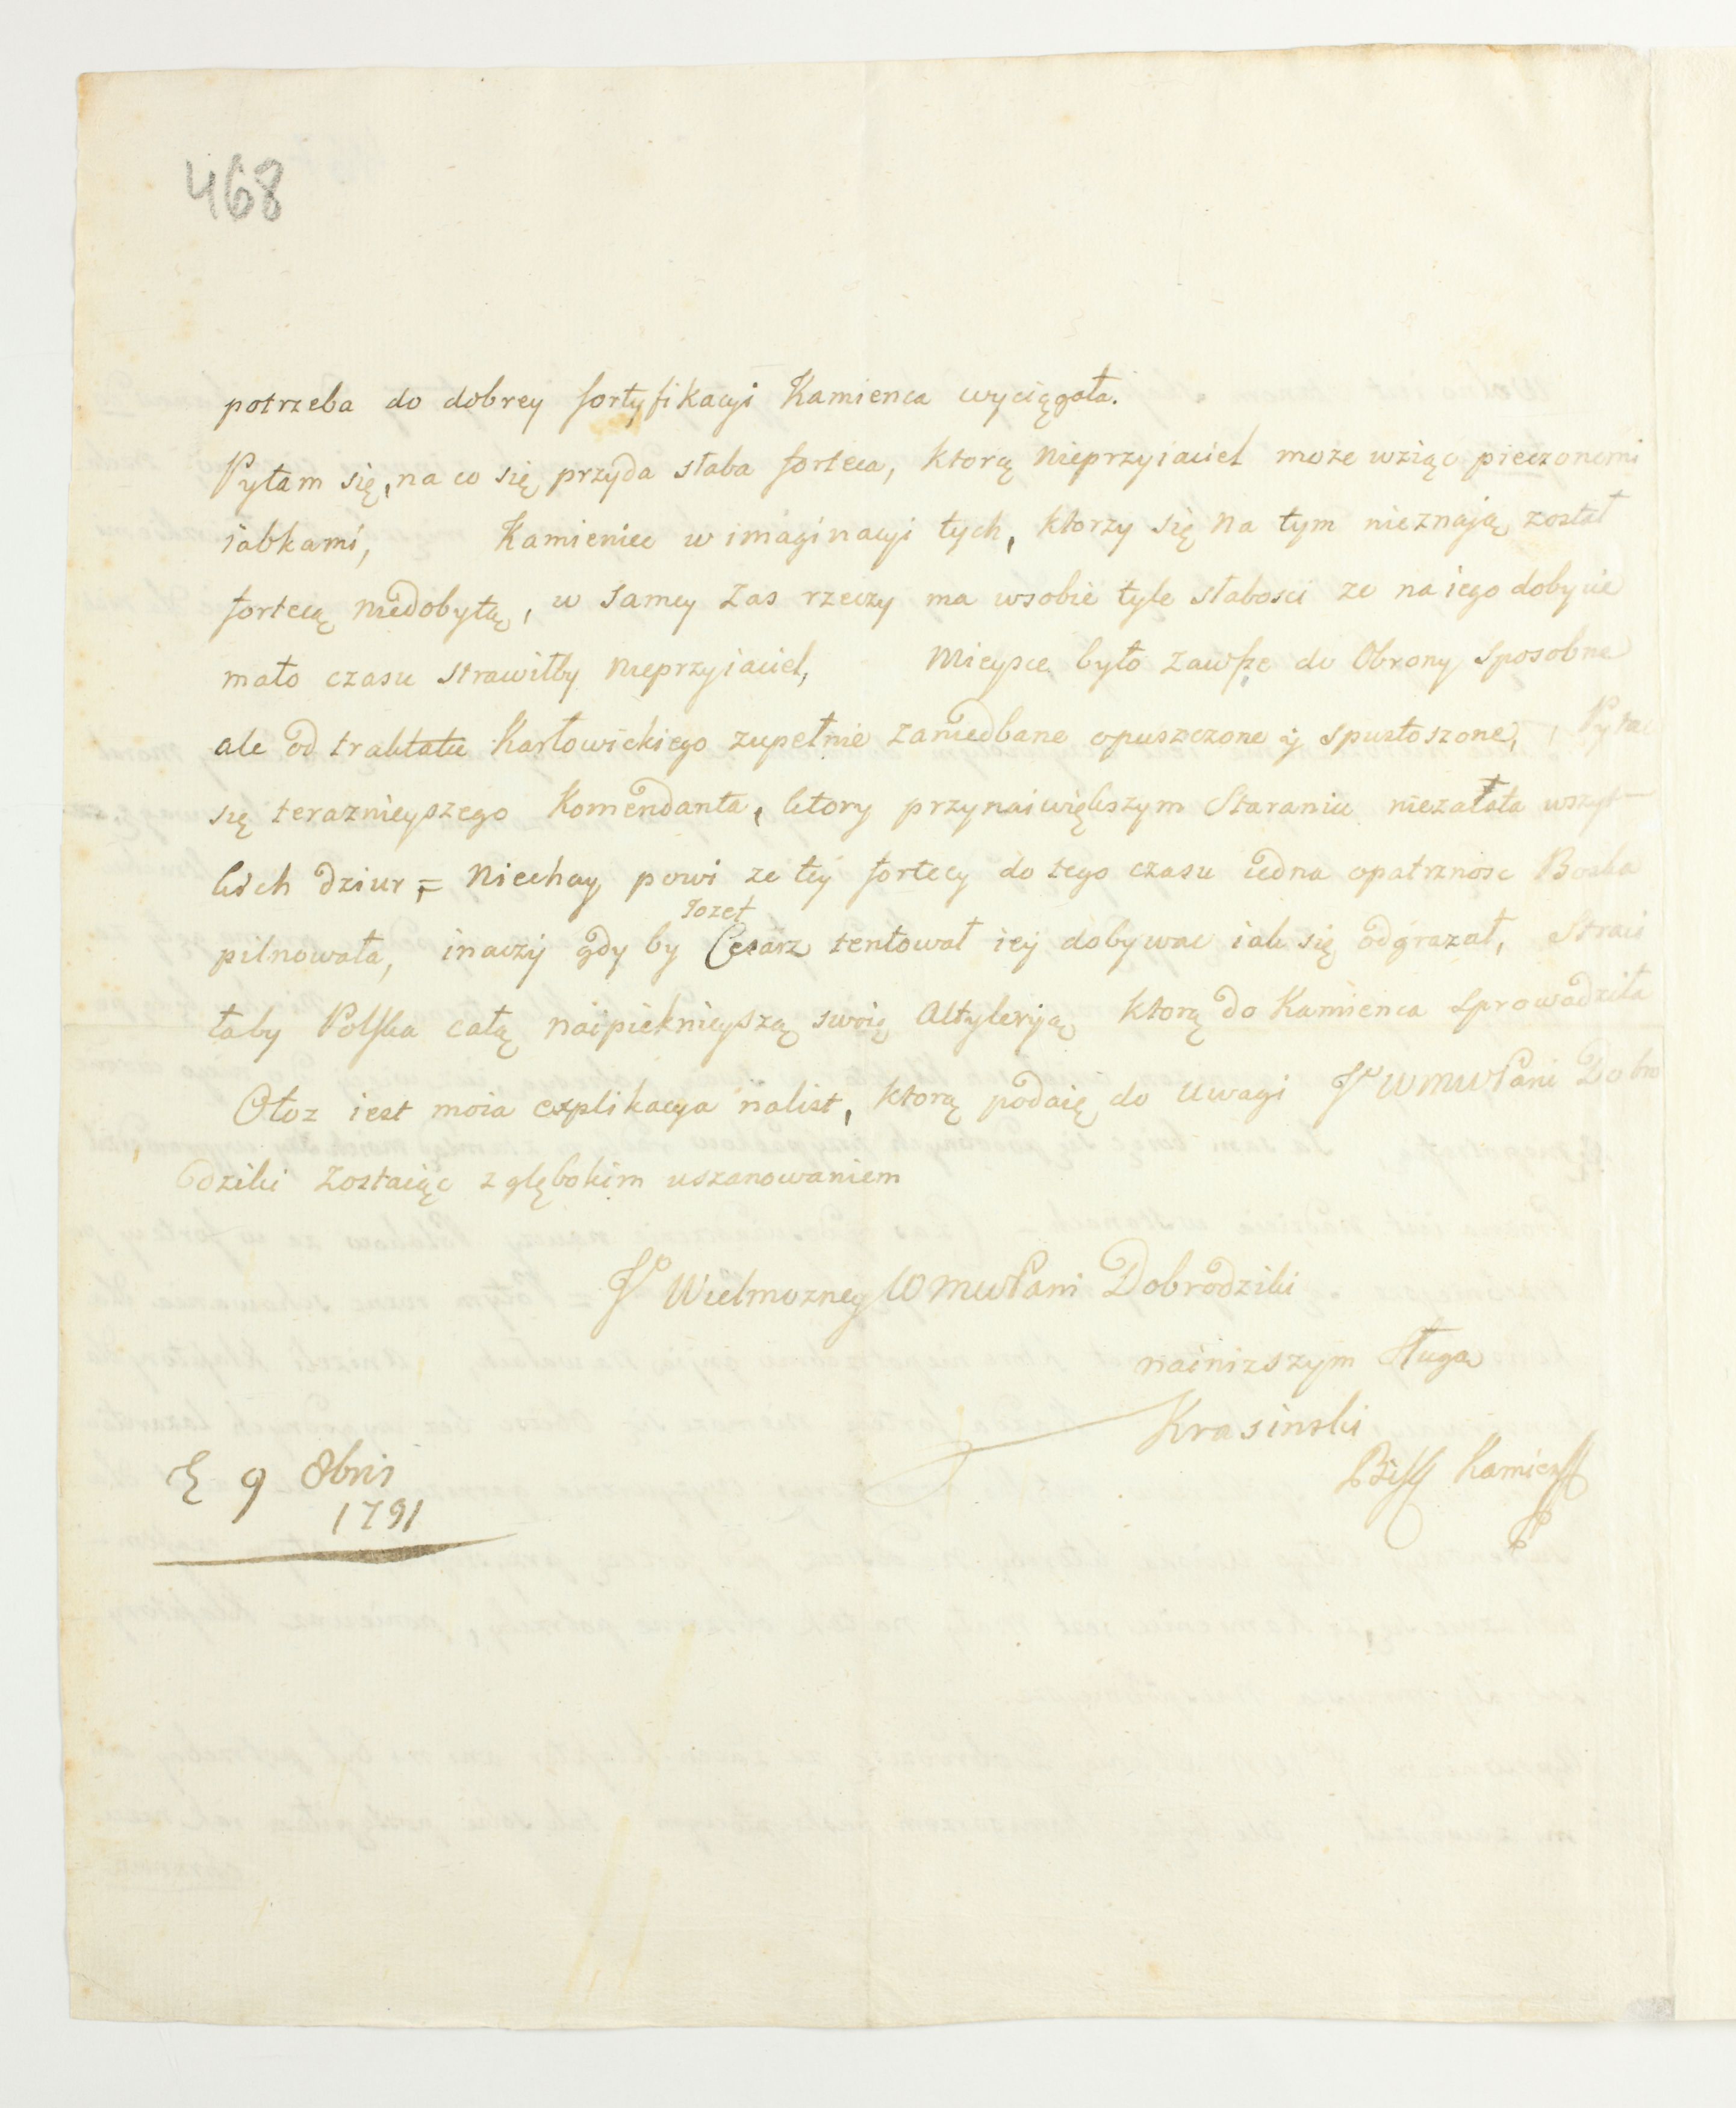 468
potrzeba do dobrey fortyfikacyi Kamienca wyciągała.
Pytam się, na co się przyda słaba forteca, ktorą nieprzyiaciel moze wziąc pieczonemi
iabkami, Kamieniec w imaginacyi tych, ktorzy się na tym nieznają został
fortecą niedobytą, w samey zas rzeczy ma wsobie tyle słabosci ze na iego dobycie
mało czasu strawiłby nieprzyiaciel, Mieysce było zawsze do Obrony sposobne
ale od traktatu Karłowickiego zupełnie zaniedbane opuszczone y spustoszone, Pytac
się teraznieyszego Komendanta, ktory przynaiwiększym Staraniu niezałata wszyt-
kich dziur, = Niechay powi ze tey fortecy do tego czasu iedna opatrznosc Boska
pilnowała, inaczy gdy by Jozef Cesarz tentował iey dobywac iak się odgrazał, Straci
łaby Polska całą naipieknieyszą swoię Altyleryią ktorą do Kamienca Sprowadziła
Otoz iest moia explikacya nalist, ktorą podaię do uwagi JP WMWPani Dobro
dziki zostaiąc z głębokim uszanowaniem
JP Wielmozney WMWPani Dobrodziki
nainizszym Sługa
Krasinski
Bisk Kamien
9 8bris
1791